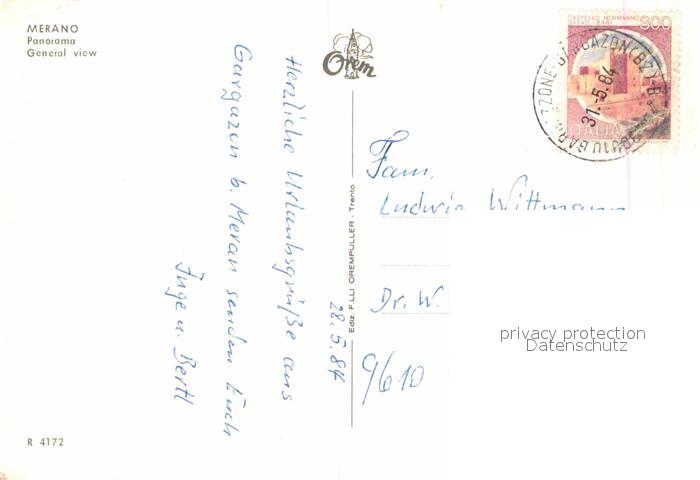 MERANO
Panorama
General view
Herzliche Urlaubsgrüße aus
Gargazon b. Meran senden Euch
Inge u. Bertl
28.5.84
R 4172
Orem
Ediz. F.LLI OREMPULLER - Trento
CASTELLO NORMANNO
SVEVO BARI
300
ITALIA
31.-5.84
Fam.
Ludwig Wittmann
Dr. W.
9610
privacy protection
Datenschutz